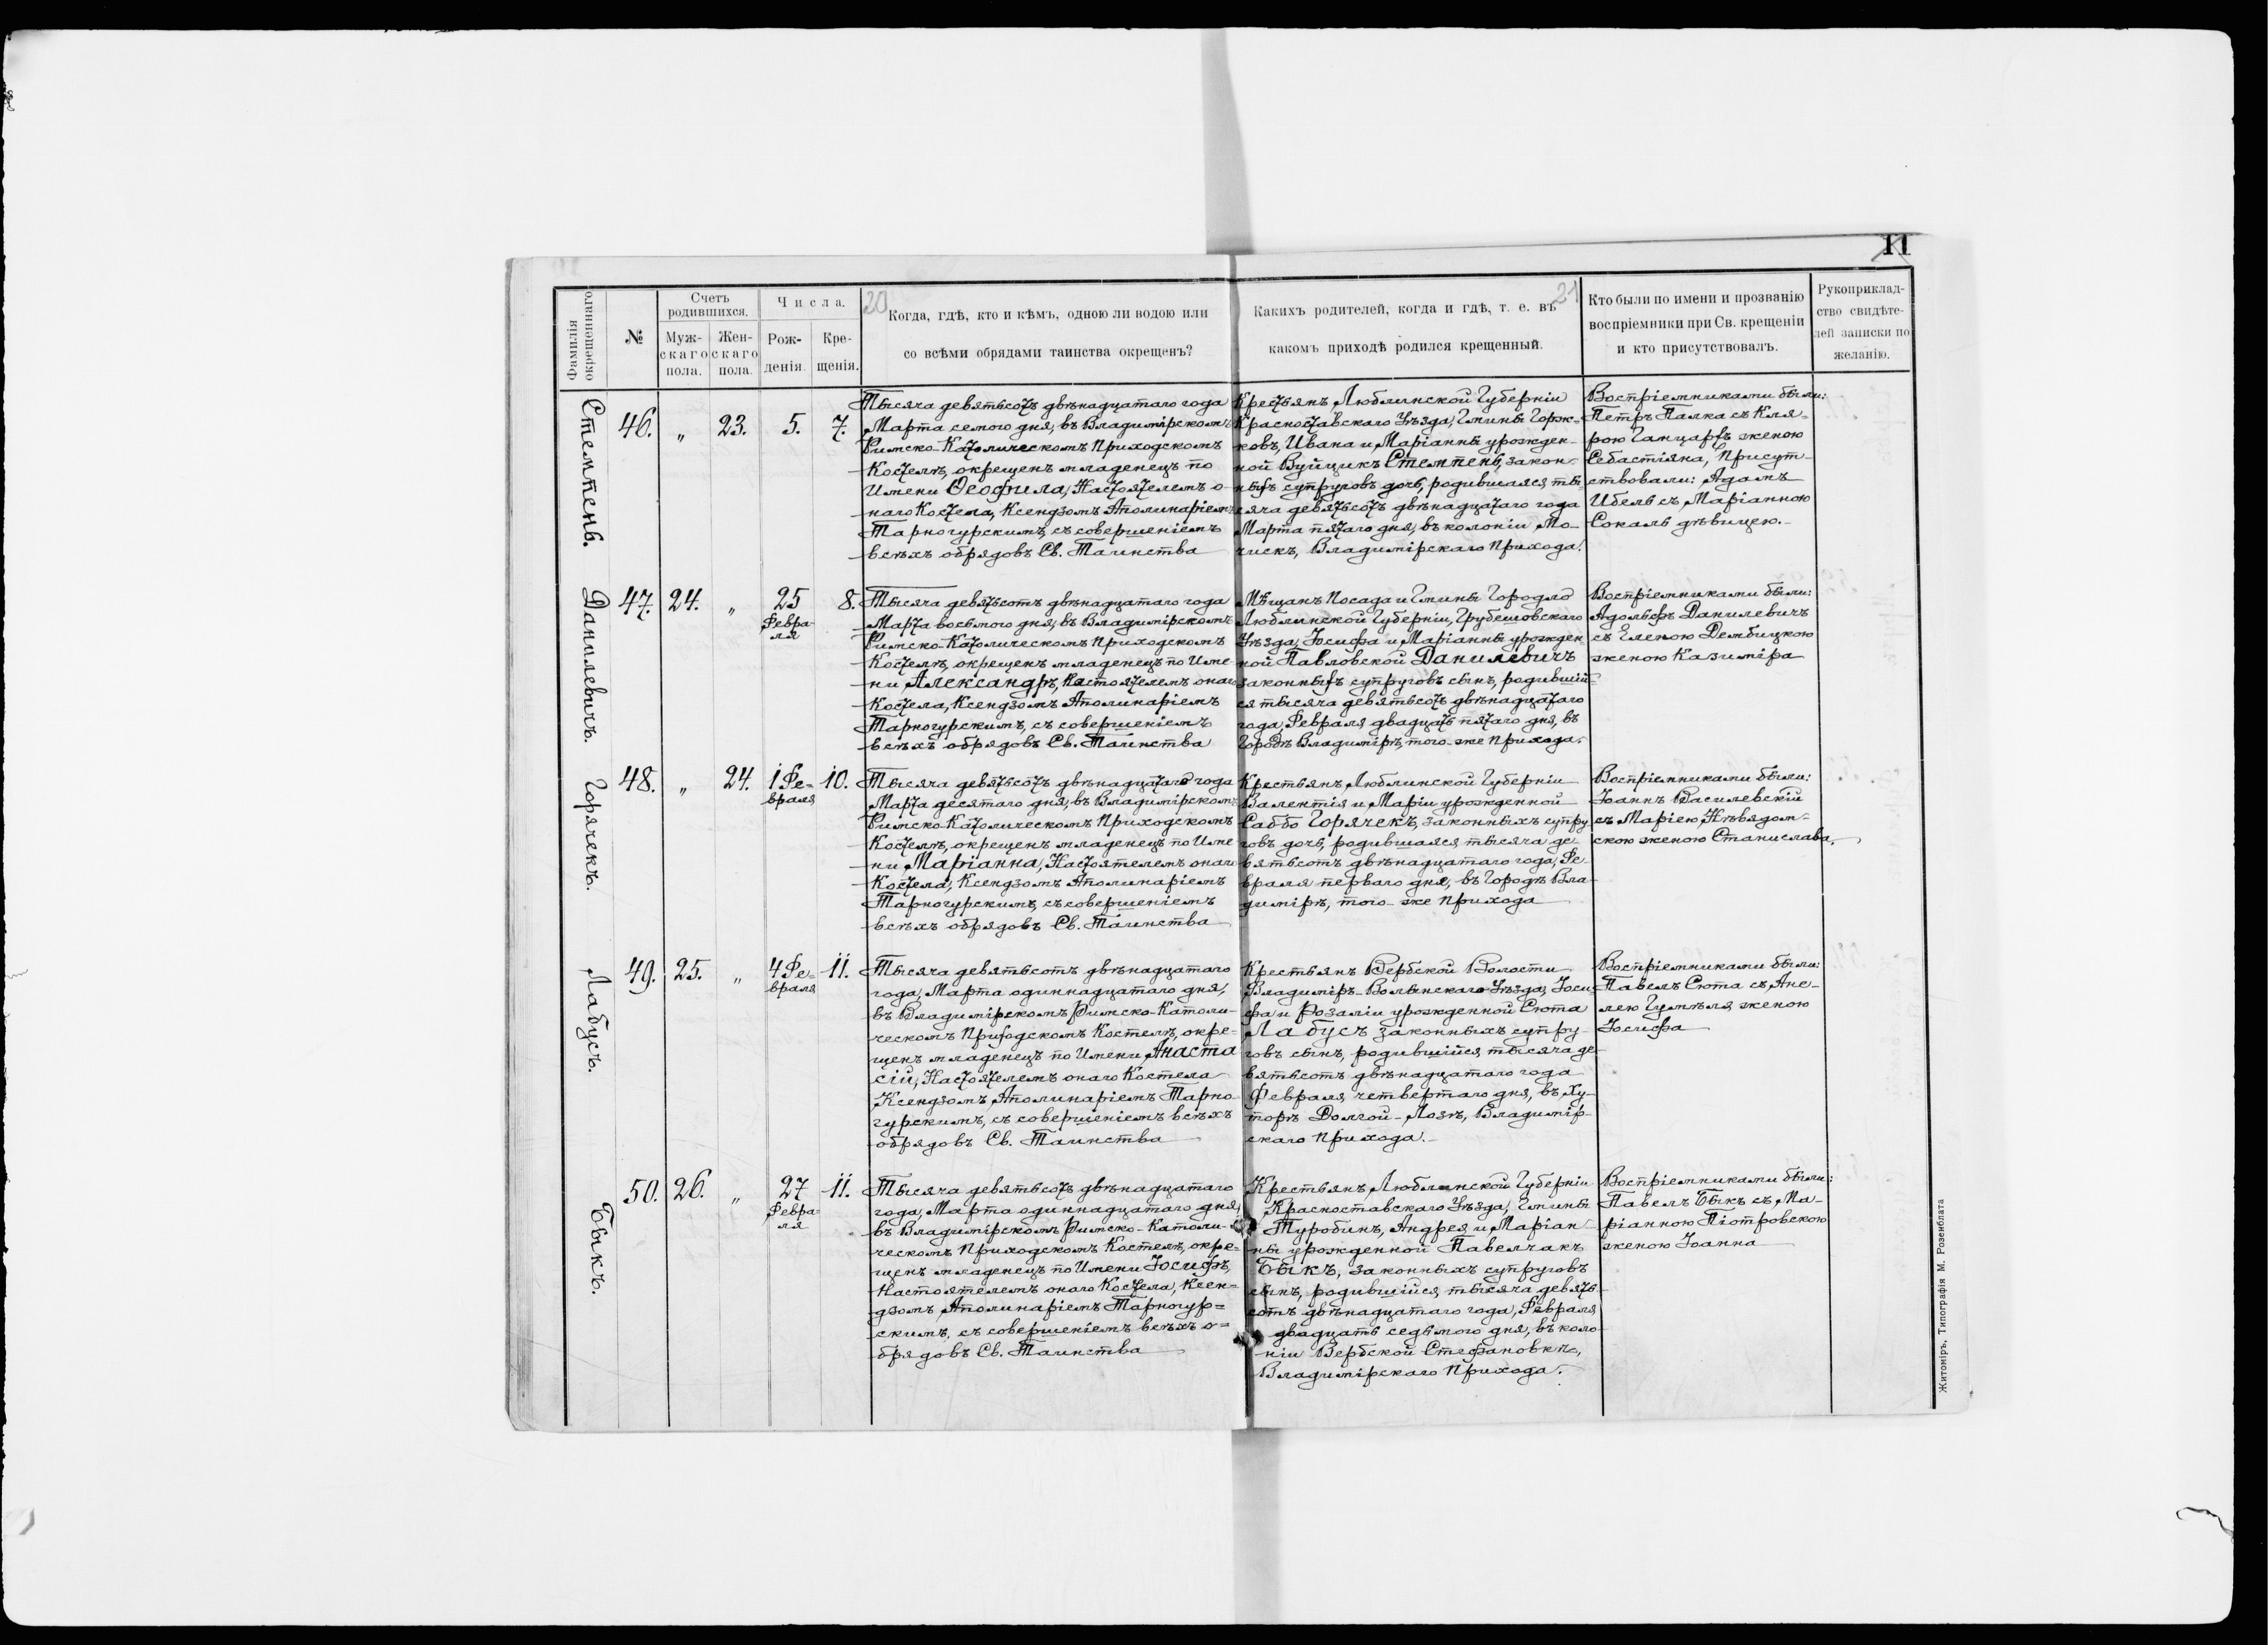 11
20
21
Фамилія окрещеннаго
№
Счетъ родившихся.
Муж-
скаго
пола.
Жен-
скаго
пола.
Числа.
Рож-
денія.
Кре-
щенія.
Когда, гдѣ, кто и кѣмъ, одною ли водою или
со всѣми обрядами таинства окрещенъ?
Какихъ родителей, когда и гдѣ, т. е. въ
какомъ приходѣ родился крещенный.
Кто были по имени и прозванію
воспріемники при Св. крещеніи
и кто присутствовалъ.
Рукоприклад-
ство свидѣте-
лей записки по
желанію.
Стемпень.
46. „ 23. 5. 7.
Тысяча девятьсотъ двѣнадцатаго года
Марта семого дня, въ Владимірскомъ
Римско-Католическомъ Приходскомъ
Костелѣ, окрещенъ младенецъ по
Имени Ѳеофила, Настоятелемъ о-
наго Костела, Ксендзомъ Аполинаріемъ
Тарногурскимъ, съ совершеніемъ
всѣхъ обрядовъ Св. Таинства
Крестьянъ Люблинской Губерніи
Красноставскаго Уѣзда, Гмины Горж-
ковъ, Ивана и Маріанны урожден-
ной Вуйцикъ Стемпень, закон-
ныхъ супруговъ дочь, родившаяся ты-
сяча девятьсотъ двѣнадцатаго года
Марта пятаго дня, въ колоніи Мо-
чискъ, Владимірскаго Прихода.
Воспріемниками были:
Петръ Палка съ Кля-
рою Ганцаръ женою
Себастіяна, Присут-
ствовали: Адамъ
Ибель съ Маріанною
Сокаль дѣвицею.
Данилевичъ.
47. 24. „ 25 Февра-
ля 8.
Тысяча девятьсотъ двѣнадцатаго года
Марта восьмого дня, въ Владимірскомъ
Римско-Католическомъ Приходскомъ
Костелѣ, окрещенъ младенецъ по Име-
ни Александръ, Настоятелемъ онаго
Костела, Ксендзомъ Аполинаріемъ
Тарногурскимъ, съ совершеніемъ
всѣхъ обрядовъ Св. Таинства
Мѣщанъ Посада и Гмины Городло
Люблинской Губерніи, Грубешовскаго
Уѣзда, Іосифа и Маріанны урожден
ной Павловской Данилевичъ
законныхъ супруговъ сынъ, родившій-
ся тысяча девятьсотъ двѣнадцатаго
года, Февраля двадцать пятаго дня, въ
Городѣ Владимірѣ, того-же Прихода.
Воспріемниками были:
Адольфъ Данилевичъ
съ Еленою Дембицкою
женою Казиміра
Горячекъ.
48. „ 24. 1 Фе-
враля 10.
Тысяча девятьсотъ двѣнадцатаго года
Марта десятаго дня, въ Владимірскомъ
Римско-Католическомъ Приходскомъ
Костелѣ, окрещенъ младенецъ по Име
ни Маріанна, Настоятелемъ онаго
Костела, Ксендзомъ Аполинаріемъ
Тарногурскимъ, съ совершеніемъ
всѣхъ обрядовъ Св. Таинства
Крестьянъ Люблинской Губерніи
Валентія и Маріи урожденной
Саббо Горячекъ, законныхъ супру
говъ дочь, родившаяся тысяча де-
вятьсотъ двѣнадцатаго года, Фе-
враля перваго дня, въ Городѣ Вла-
димірѣ, того-же Прихода
Воспріемниками были:
Іоаннъ Василевскій
съ Маріею Нѣвядом-
скою женою Станислава.
Лабусъ.
49. 25. „ 4 Фе-
враля 11.
Тысяча девятьсотъ двѣнадцатаго
года, Марта одиннадцатаго дня,
въ Владимірскомъ Римско-Католи-
ческомъ Приходскомъ Костелѣ, окре-
щенъ младенецъ по Имени Анаста
сій, Настоятелемъ онаго Костела
Ксендзомъ Аполинаріемъ Тарно-
гурскимъ, съ совершеніемъ всѣхъ
обрядовъ Св. Таинства
Крестьянъ Вербской Волости
Владиміръ-Волынскаго Уѣзда, Іоси-
фа и Розаліи урожденной Сюта
Лабусъ законныхъ супру-
говъ сынъ, родившійся тысяча де-
вятьсотъ двѣнадцатаго года
Февраля, четвертаго дня, въ Ху-
торѣ Долгой-Лозѣ, Владимір-
скаго Прихода.
Воспріемниками были:
Павелъ Сюта съ Ане-
лею Гумѣля женою
Іосифа
Быкъ.
50. 26. „ 27
Февра-
ля 11.
Тысяча девятьсотъ двѣнадцатаго
года, Марта одиннадцатаго дня,
въ Владимірскомъ Римско-Католи-
ческомъ Приходскомъ Костелѣ, окре-
щенъ младенецъ по Имени Іосифъ,
Настоятелемъ онаго Костела, Ксен-
дзомъ Аполинаріемъ Тарногур-
скимъ, съ совершеніемъ всѣхъ о-
брядовъ Св. Таинства
Крестьянъ, Люблинской Губерніи
Красноставскаго Уѣзда, Гмины
Туробинъ, Андрея и Маріан-
ны урожденной Павелчакъ
Быкъ, законныхъ супруговъ
сынъ, родившійся, тысяча девять-
сотъ двѣнадцатаго года, Февраля
двадцать седьмого дня, въ коло-
ніи Вербской Стефановкѣ,
Владимірскаго Прихода.
Воспріемниками были:
Павелъ Быкъ съ Ма-
ріанною Піотровскою
женою Іоанна
Житоміръ, Типографія М. Розенблата